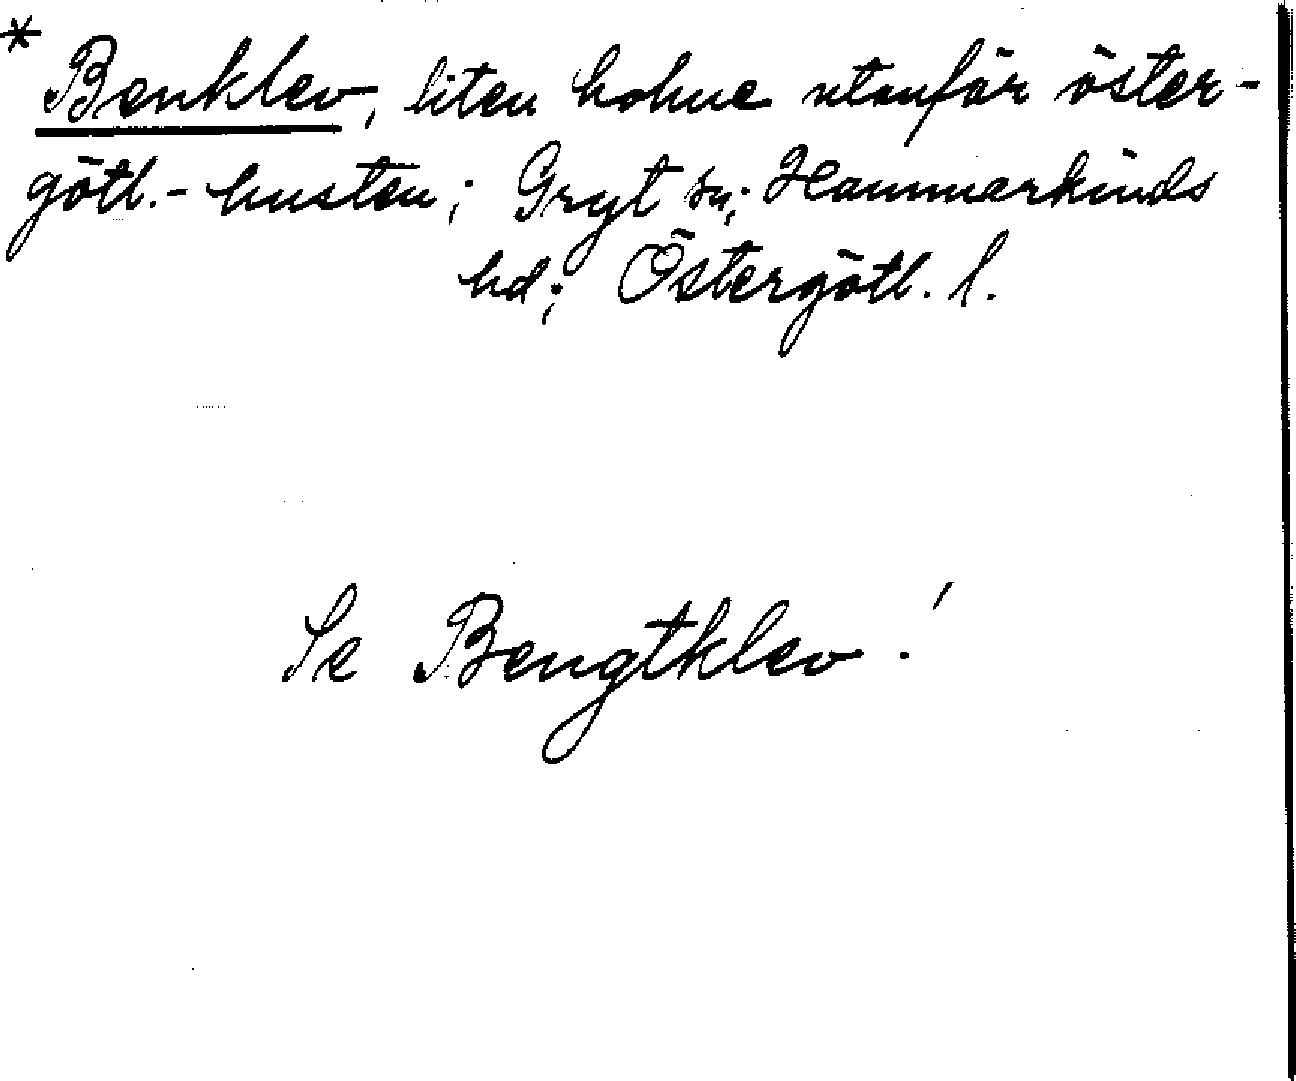 * Benklev, liten holme utanför öster-
götl.-kusten; Gryt sn; Hammarkinds
hd; Östergötl. l.
Se Bengtklev!